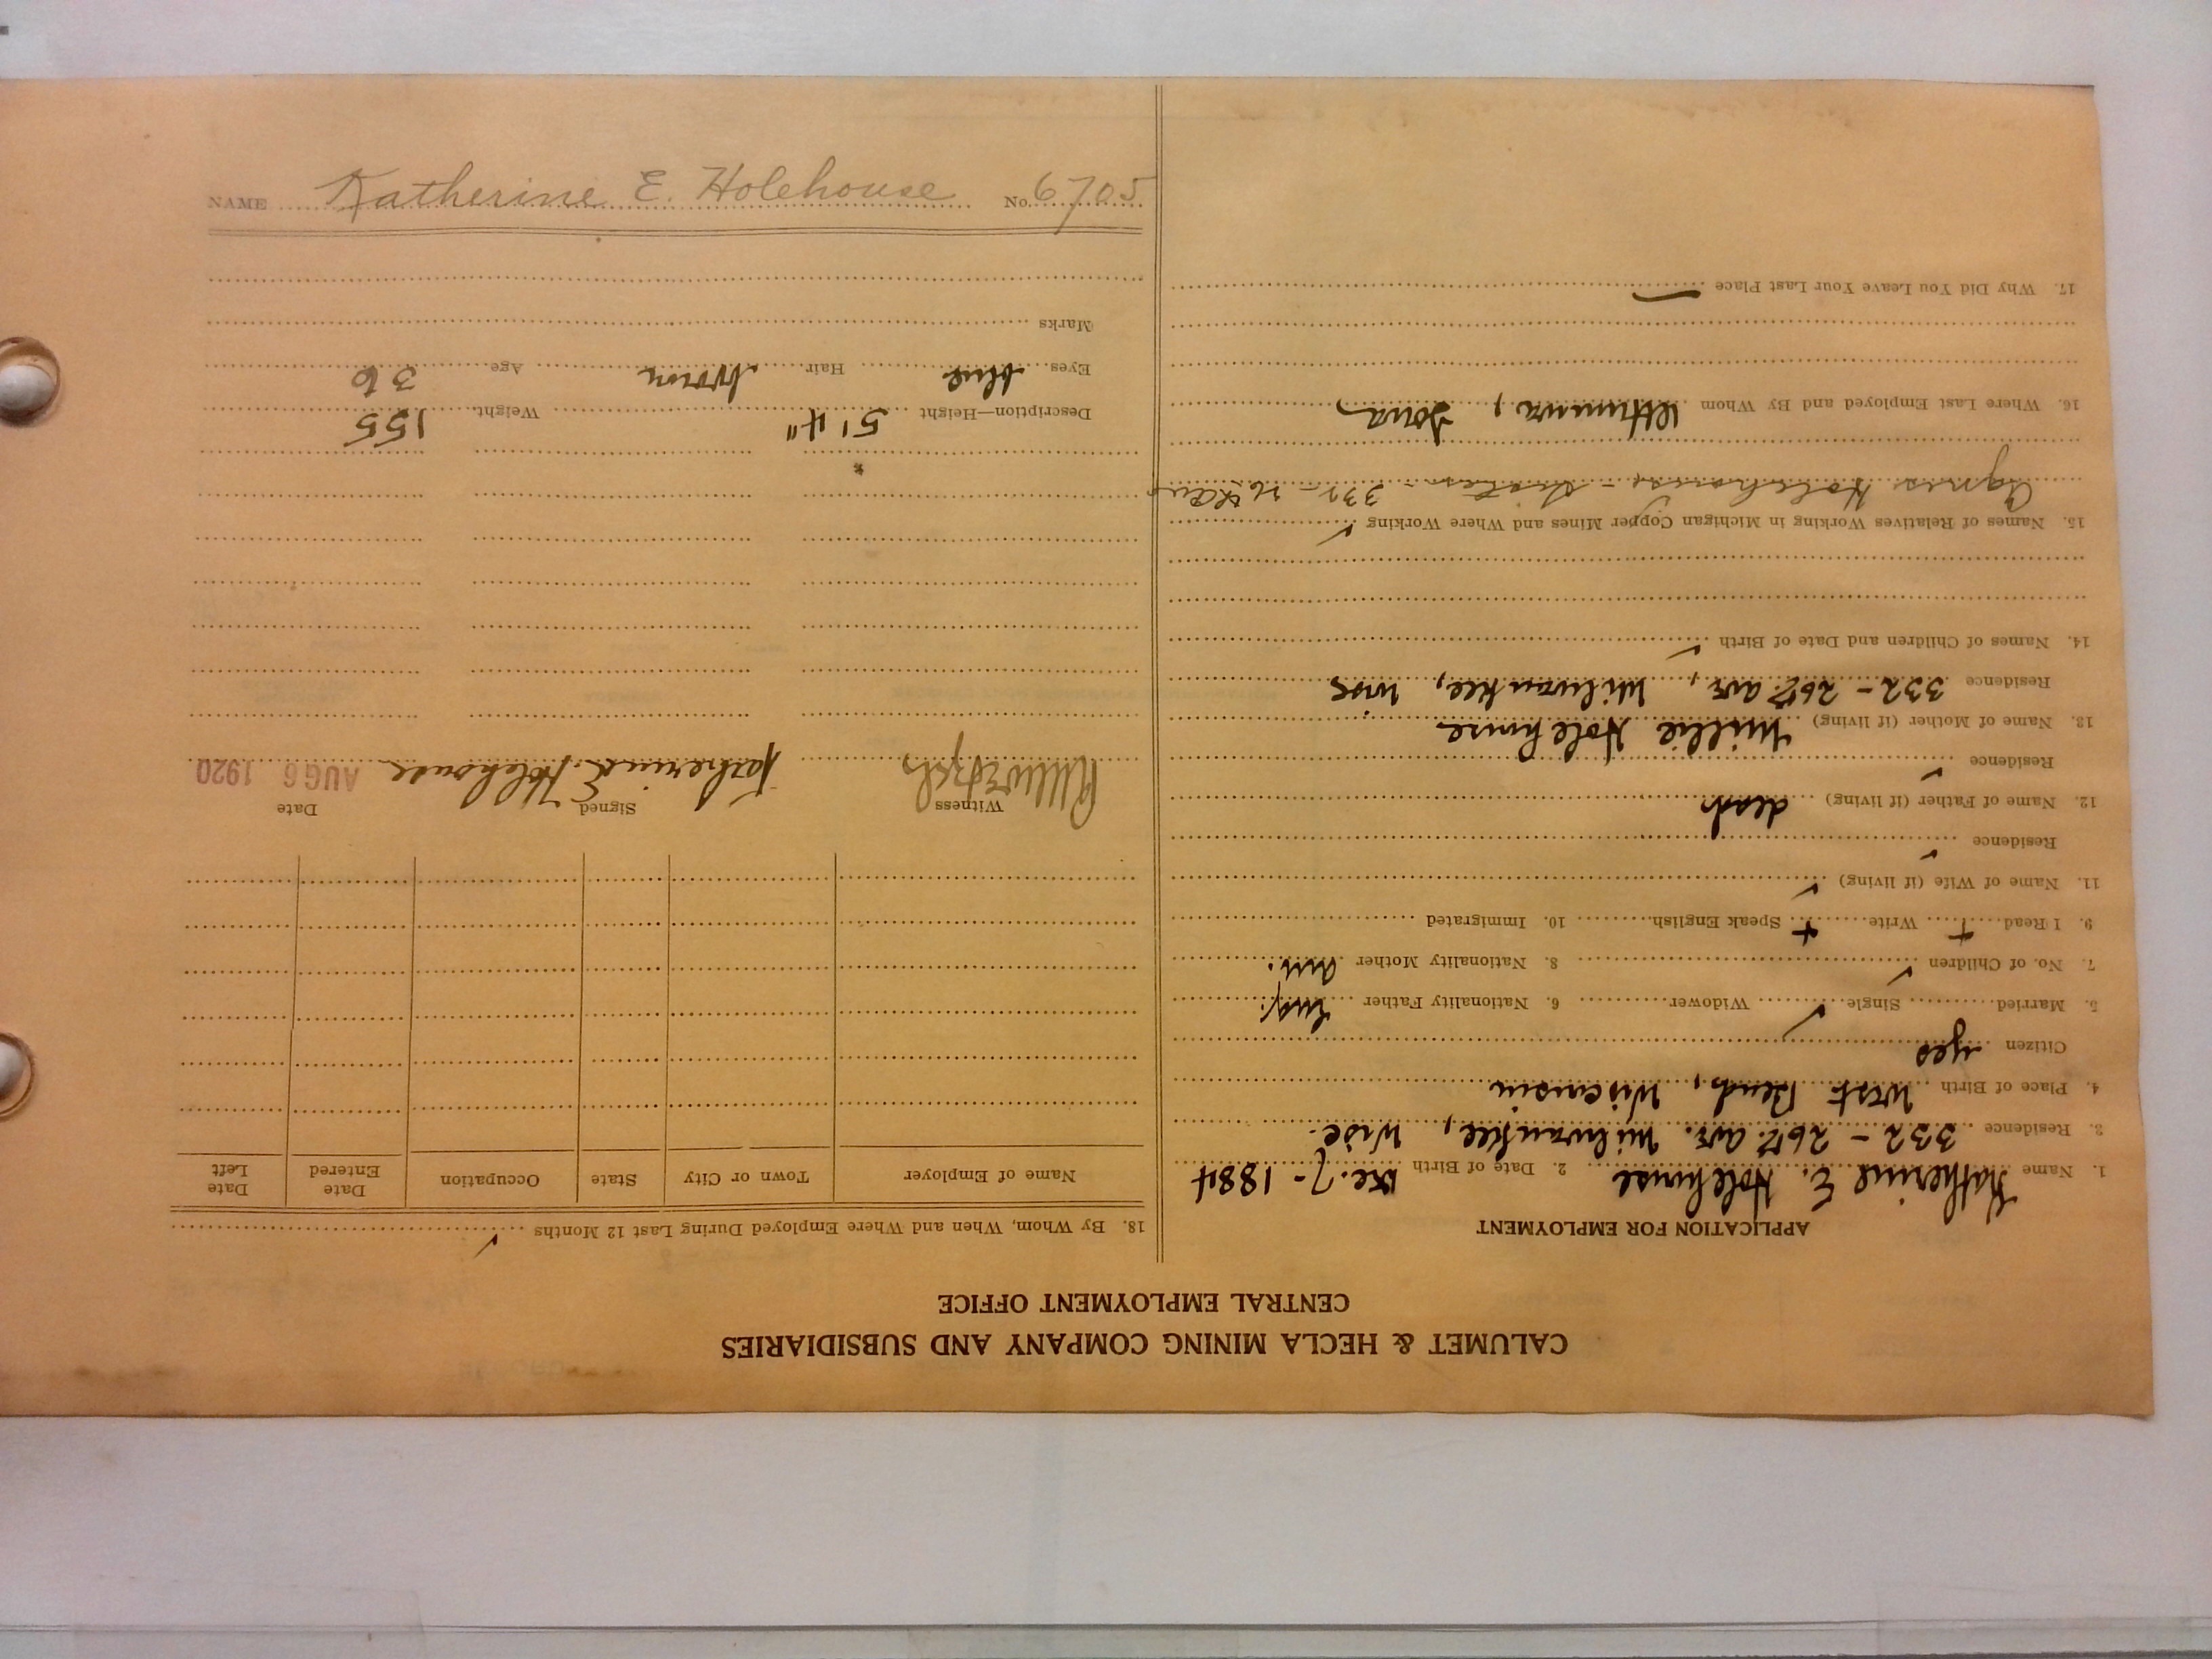 CALUMET & HECLA MINING COMPANY AND SUBSIDIARIES
CENTRAL EMPLOYMENT OFFICE
APPLICATION FOR EMPLOYMENT
1. Name Katherine E. Holehouse 2. Date of Birth Dec. 7 - 1884
3. Residence 332 - 26th av. Milwaukee, Wisc.
4. Place of Birth West Bend, Wisconsin
Citizen yes
5. Married Single ✓ Widower 6. Nationality Father Eng.
7. No. of Children ✓ 8. Nationality Mother am.
9. I Read + Write + Speak English 10. Immigrated
11. Name of Wife (if living) ✓
Residence ✓
12. Name of Father (if living) dead
Residence ✓
13. Name of Mother (if living) Millie Holehouse
Residence 332 - 26th av, Milwaukee, Wisc
14. Names of Children and Date of Birth ✓
15. Names of Relatives Working in Michigan Copper Mines and Where Working ✓
Agnes Holehouse - Sister - 332 - 26
16. Where Last Employed and By Whom Ottumwa, Iowa
17. Why Did You Leave Your Last Place —
18. By Whom, When and Where Employed During Last 12 Months ✓
Name of Employer Town or City State Occupation Date Entered Date Left
Witness Signed Date
Katherine E. Holehouse AUG 6 1920
Description—Height 5' 4" Weight 155
Eyes blue Hair brown Age 36
Marks
NAME Katherine E. Holehouse No. 6705